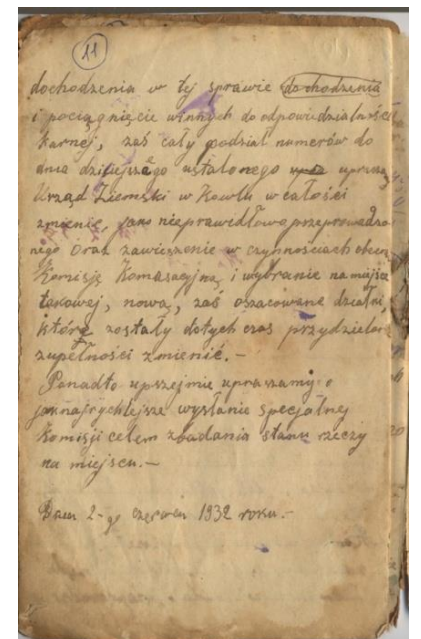 11
dochodzenia w tej sprawie dochodzenia
i pociągnięcie winnych do odpowiedzialności
karnej, zaś cały podział numerów do
dnia dzisiejszego ustalonego uprasza
Urząd Ziemski w Kowlu w całości
zmienić, jako nieprawidłowo przeprowadzo-
nego oraz zawieszenie w czynnościach obecn.
Komisję Komasacyjną, i wybranie na miejsce
takowej, nową, zaś oszacowane działki,
które zostały dotychczas przydzielon
zupełności zmienić.-
Ponadto upszejmie upraszamy o
jaknajrychlejsze wysłanie specjalnej
Komisji celem zbadania stanu rzeczy
na miejscu.-
2-go czerwca 1932 roku.-